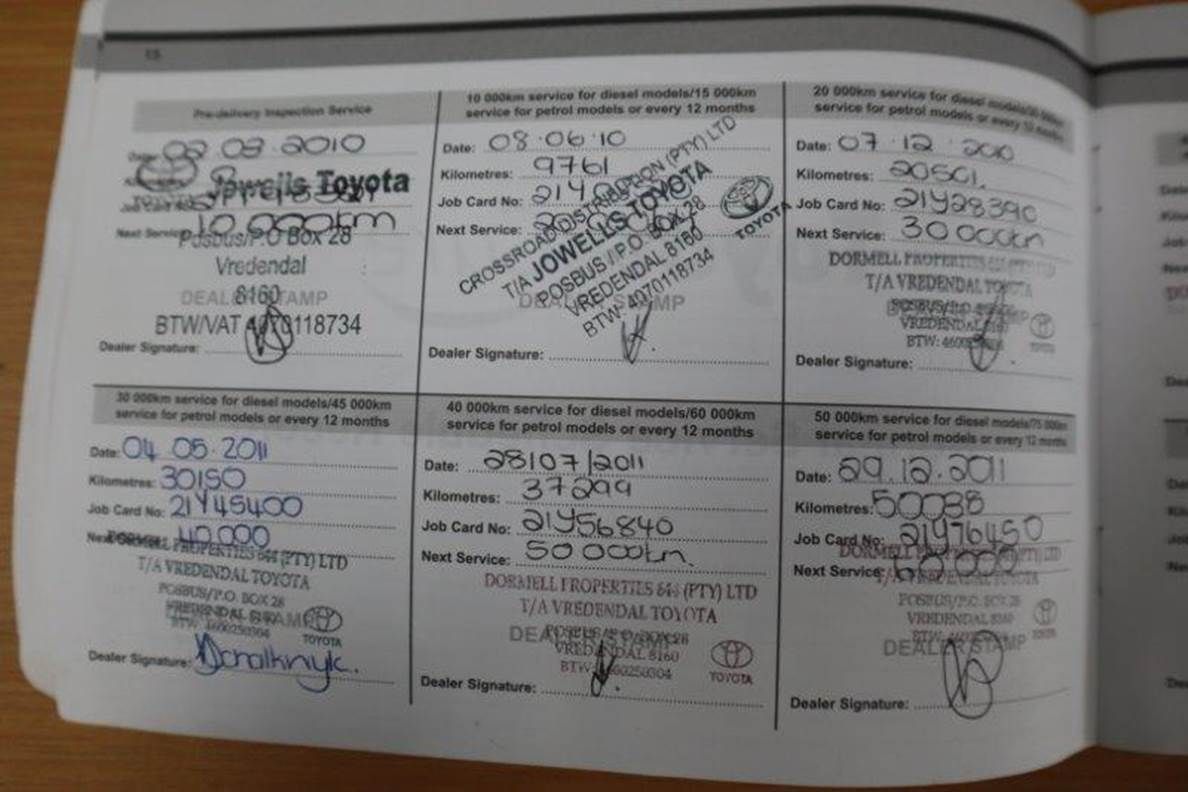 13
Pre-delivery Inspection Service
02 03 2010
Jowells Toyota
10 000km
Posbus/P.O Box 28
Vredendal
8160
DEALER STAMP
BTW/VAT 4070118734
Dealer Signature:
10 000km service for diesel models/15 000km
service for petrol models or every 12 months
Date: 08.06.10
Kilometres: 9761
Job Card No:
Next Service:
CROSSROAD DISTRIBUTION (PTY) LTD
T/A JOWELLS TOYOTA
POSBUS / P.O. BOX 28
VREDENDAL 8160
BTW: 4070118734
TOYOTA
DEALER STAMP
Dealer Signature:
20 000km service for diesel models/30 000km
service for petrol models or every 12 months
Date: 07.12.2010
Kilometres:
Job Card No: 21Y28390
Next Service: 30 000km
DORMELL PROPERTIES 644 (PTY) LTD
T/A VREDENDAL TOYOTA
POSBUS/P.O. BOX 28
VREDENDAL 8160
BTW:
TOYOTA
Dealer Signature:
30 000km service for diesel models/45 000km
service for petrol models or every 12 months
Date: 04 05.2011
Kilometres: 30150
Job Card No: 21Y45400
Next Service: 40 000
DORMELL PROPERTIES 644 (PTY) LTD
T/A VREDENDAL TOYOTA
POSBUS/P.O. BOX 28
VREDENDAL 8160
BTW: 4600250304
TOYOTA
Dealer Signature:
40 000km service for diesel models/60 000km
service for petrol models or every 12 months
Date: 28/07/2011
Kilometres: 37299
Job Card No: 21Y56840
Next Service: 50 000km
DORMELL PROPERTIES 644 (PTY) LTD
T/A VREDENDAL TOYOTA
DEALER STAMP
POSBUS/P.O. BOX 28
VREDENDAL 8160
BTW: 4600250304
TOYOTA
Dealer Signature:
50 000km service for diesel models/75 000km
service for petrol models or every 12 months
Date: 29.12.2011
Kilometres: 50038
Job Card No: 21Y76450
Next Service: 60 000
DORMELL PROPERTIES 644 (PTY) LTD
T/A VREDENDAL TOYOTA
POSBUS/P.O. BOX 28
VREDENDAL 8160
DEALER STAMP
TOYOTA
Dealer Signature: